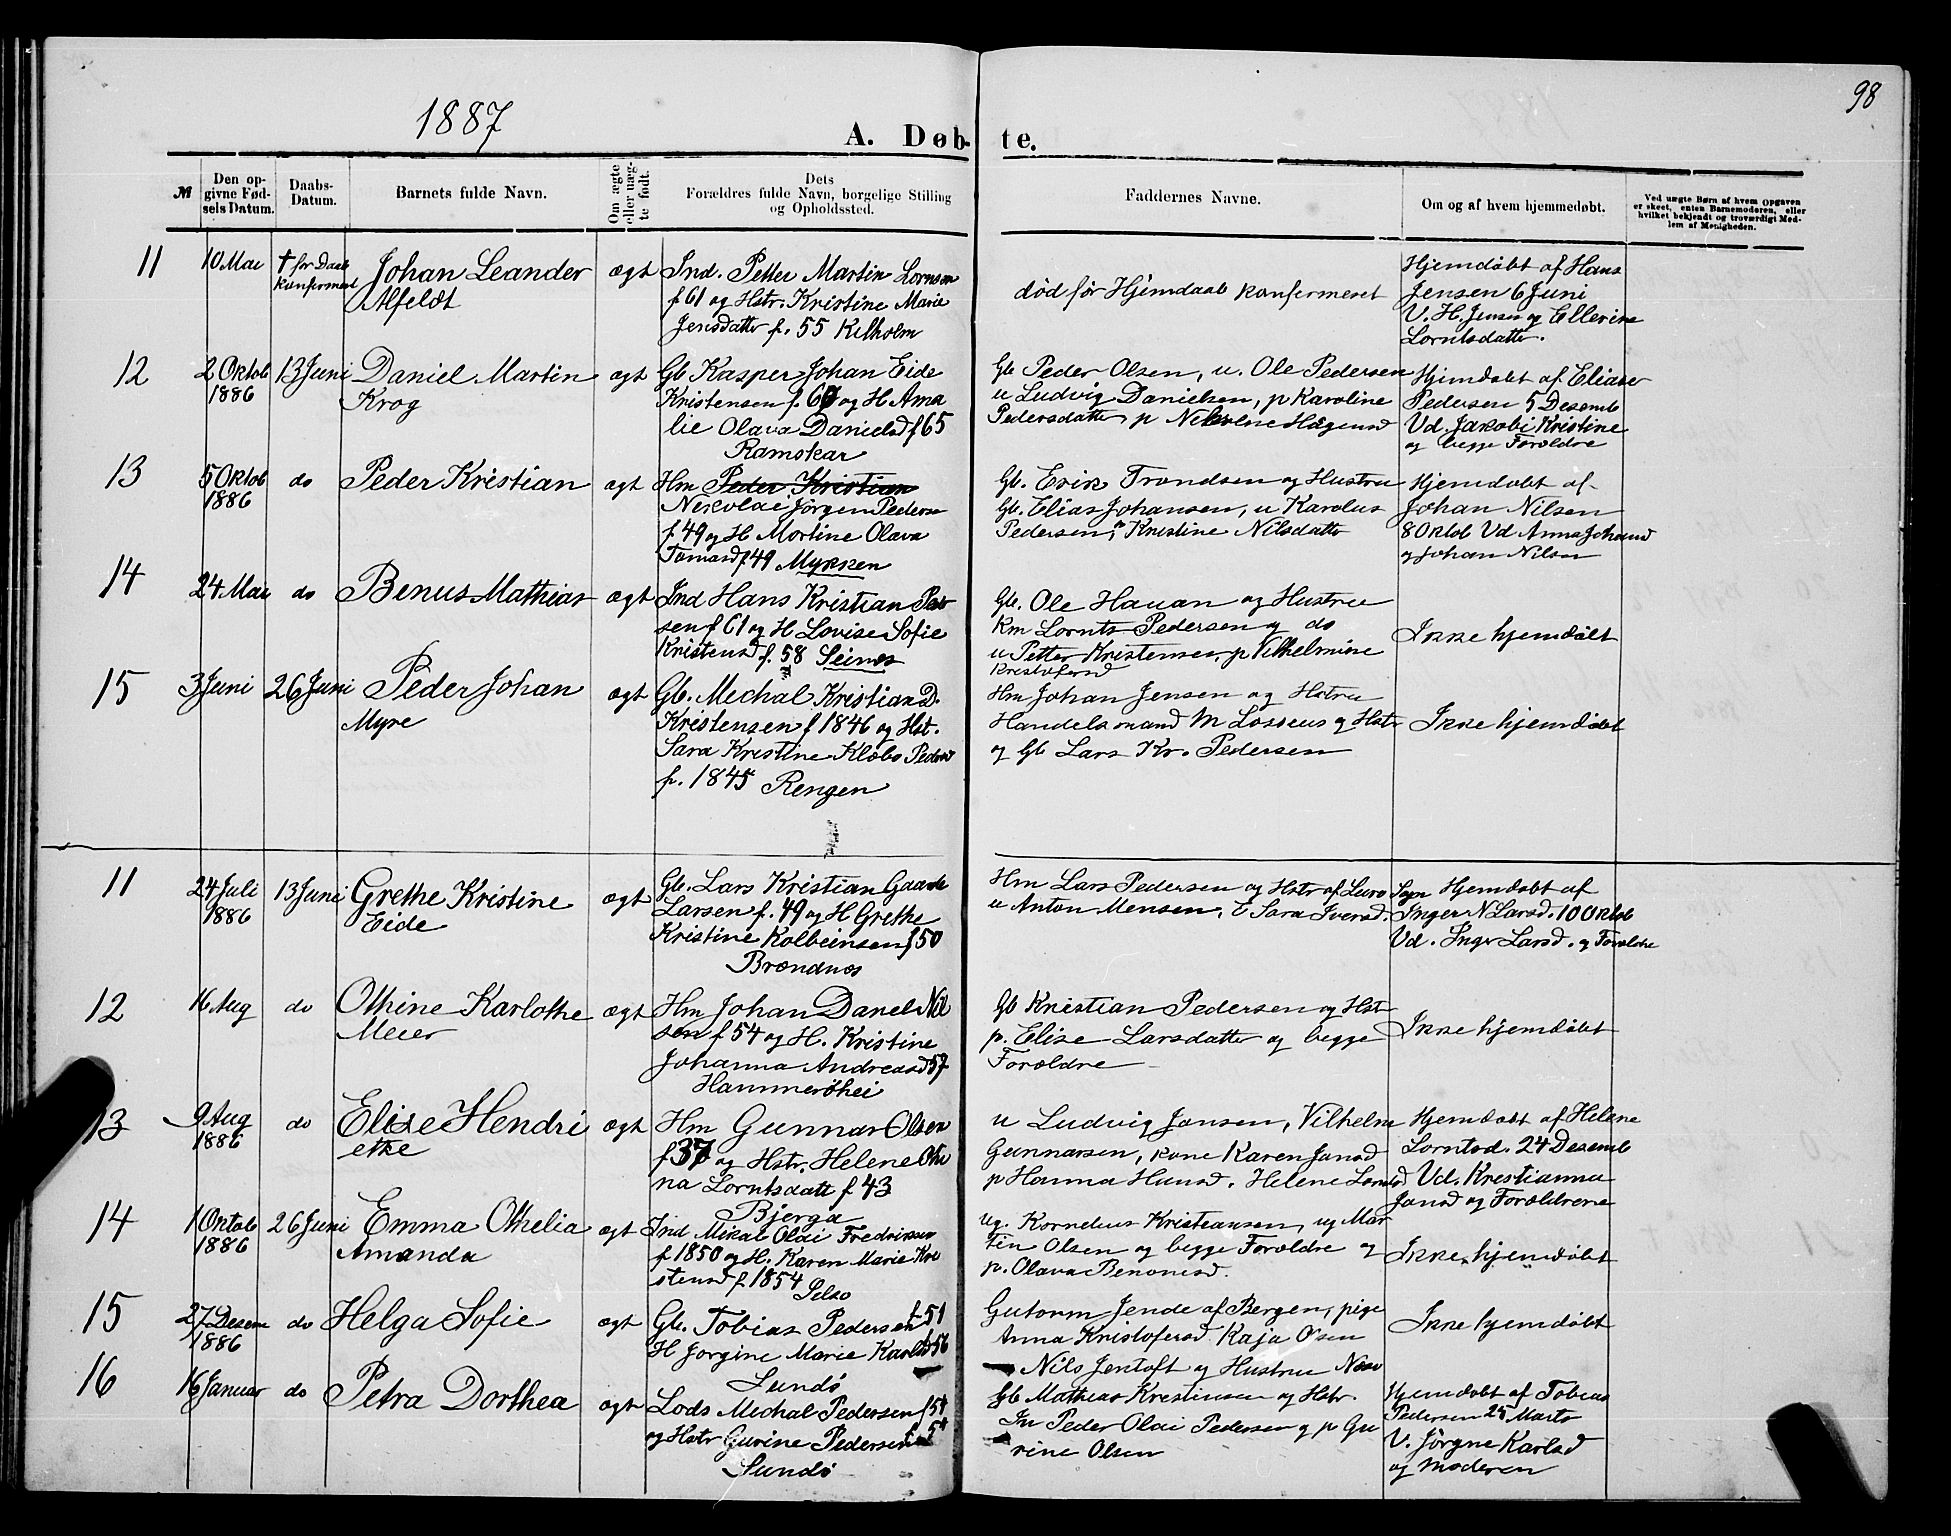 98
1887
A. Døb- te.
№
Den op-
givne Fød-
sels Datum.
Daabs-
Datum.
Barnets fulde Navn.
Om ægte
eller uæg-
te født.
Dets
Forældres fulde Navn, borgelige Stilling
og Opholdssted.
Faddernes Navne.
Om og af hvem hjemmedøbt.
Ved uægte Børn af hvem Opgaven
er skeet, enten Barnemoderen, eller
hvilket bekjendt og troværdigt Med-
lem af Menigheden.
11
10 Mai
† før Daab
konfirmert
Johan Leander
Alfeldt
ægt
Ind. Petter Martin Lornsen
f 61 og Hstr. Kristine Marie
Jensdatter f. 55 Kilholm
død før Hjemdaab konfermeret
Hjemdøbt af Hans
Jensen 6 Juni
V. H. Jensen og Ellerine
Lorntsdatter.
12
2 Oktob
1886
13 Juni
Daniel Martin
Krog
ægt
Gb Kasper Johan Eide
Kristensen f. 67 og H Ama
lie Olava Danielsd f 65
Ramskar
Gb Peder Olsen, u. Ole Pedersen
u Ludvig Danielsen, p Karoline
Pedersdatter p Nikoline Hågensd
Hjemdøbt af Eliaser
Pedersen 5 Desemb
Vd. Jakobi Kristine
og begge Forældre
13
5 Oktob
1886
do
Peder Kristian
ægt
Hm Peder Kristian
Nikolai Jørgen Peders
f 49 og H Mortine Olava
Tomasd f 49 Mykken
Gb. Erik Trondsen og Hustru
Gb. Elias Johansen, u Karolus
Pedersen, p Kristine Nilsdatter
Hjemdøbt af
Johan Nilsen
8 Oktob Vd Anna Johansd
og Johan Nilsen
14
24 Mai
do
Benus Mathias
ægt
Ind Hans Kristian Peder
sen f 61 og H Lovise Sofie
Kristensd f. 58 Seines
Gb. Ole Hauan og Hustru
Km Lornts Pedersen og do
u Petter Kristensen, p Vilhelmine
Kristofersd
Ikke hjemdøbt
15
3 Juni
26 Juni
Peder Johan
Myre
ægt
Gb. Mechal Kristian D.
Kristensen f 1846 og Hst.
Sara Kristine Klæbo Pedersd
f. 1845 Rengen
Hm Johan Jensen og Hstru
Handelsmand M Lossius og Hstr
og Gb Lars Kr. Pedersen
Ikke hjemdøbt
11
24 Juli
1886
13 Juni
Grethe Kristine
Eide
ægt
Gb. Lars Kristian Gaarde
Larsen f. 49 og H Grethe
Kristine Kolbeinsen f 50
Brændnes
Hm Lars Pedersen og Hstr af Lurø Sogn
u Anton Mensen, E Sara Iversd.
Hjemdøbt af
Inger N Larsd. 10 Oktob
Vd. Inger Larsd. og Forældre
12
16 Aug
do
Othine Karlothe
Meier
ægt
Hm Johan Danel Nil
sen f 54 og H. Kristine
Johanna Andreasd 57
Hammerøhei
Gb Kristian Pedersen og Hstr
p. Elise Larsdatter og begge
Forældre
Ikke hjemdøbt
13
9 Aug
1886
do
Elise Hendri
etke
ægt
Hm Gunnar Olsen
f 37 og Hstr. Helene Othi
na Lorntsdatt f 43
Bjerga
u Ludvig Jansen, Vilhelm
Gunnarsen, Kone Karen Jansd
p Hanna Hansd. Helene Lorntsd
Hjemdøbt af Helene
Lorntsd. 24 Desemb
Vd. Krestianna
Jansd og Forældrene
14
1 Oktob
1886
26 Juni
Emma Othelia
Amanda
ægt
Ind Mikal Olai Fredriksen
f 1850 og H. Karen Marie Kri
stensd f 1854
Selsø
ug. Kornelius Kristiansen, ug Mar
tin Olsen og begge Forældre og
p. Olava Benonisd.
Ikke hjemdøbt
15
27 Desem
1886
do
Helga Sofie
ægt
Gb. Tobias Pedersen f 51
H Jørgine Marie Karlsd 56
Sundø
Gutorm Jende af Bergen, pige
Anna Kristofersd. Kaja Olsen
Nils Jentoft og Hustru
Ikke hjemdøbt
16
16 Januar
do
Petra Dorthea
ægt
Lods Mechal Pedersen f 54
og Hstr Gurine Pedersen f 54
Sundø
Gb Mathias Kristensen og Hstr.
In Peder Olai Pedersen og p Gu
rine Olsen
Hjemdøbt af Tobias
Pedersen 25 Marts
V. Jörgne Karlsd
og Moderen